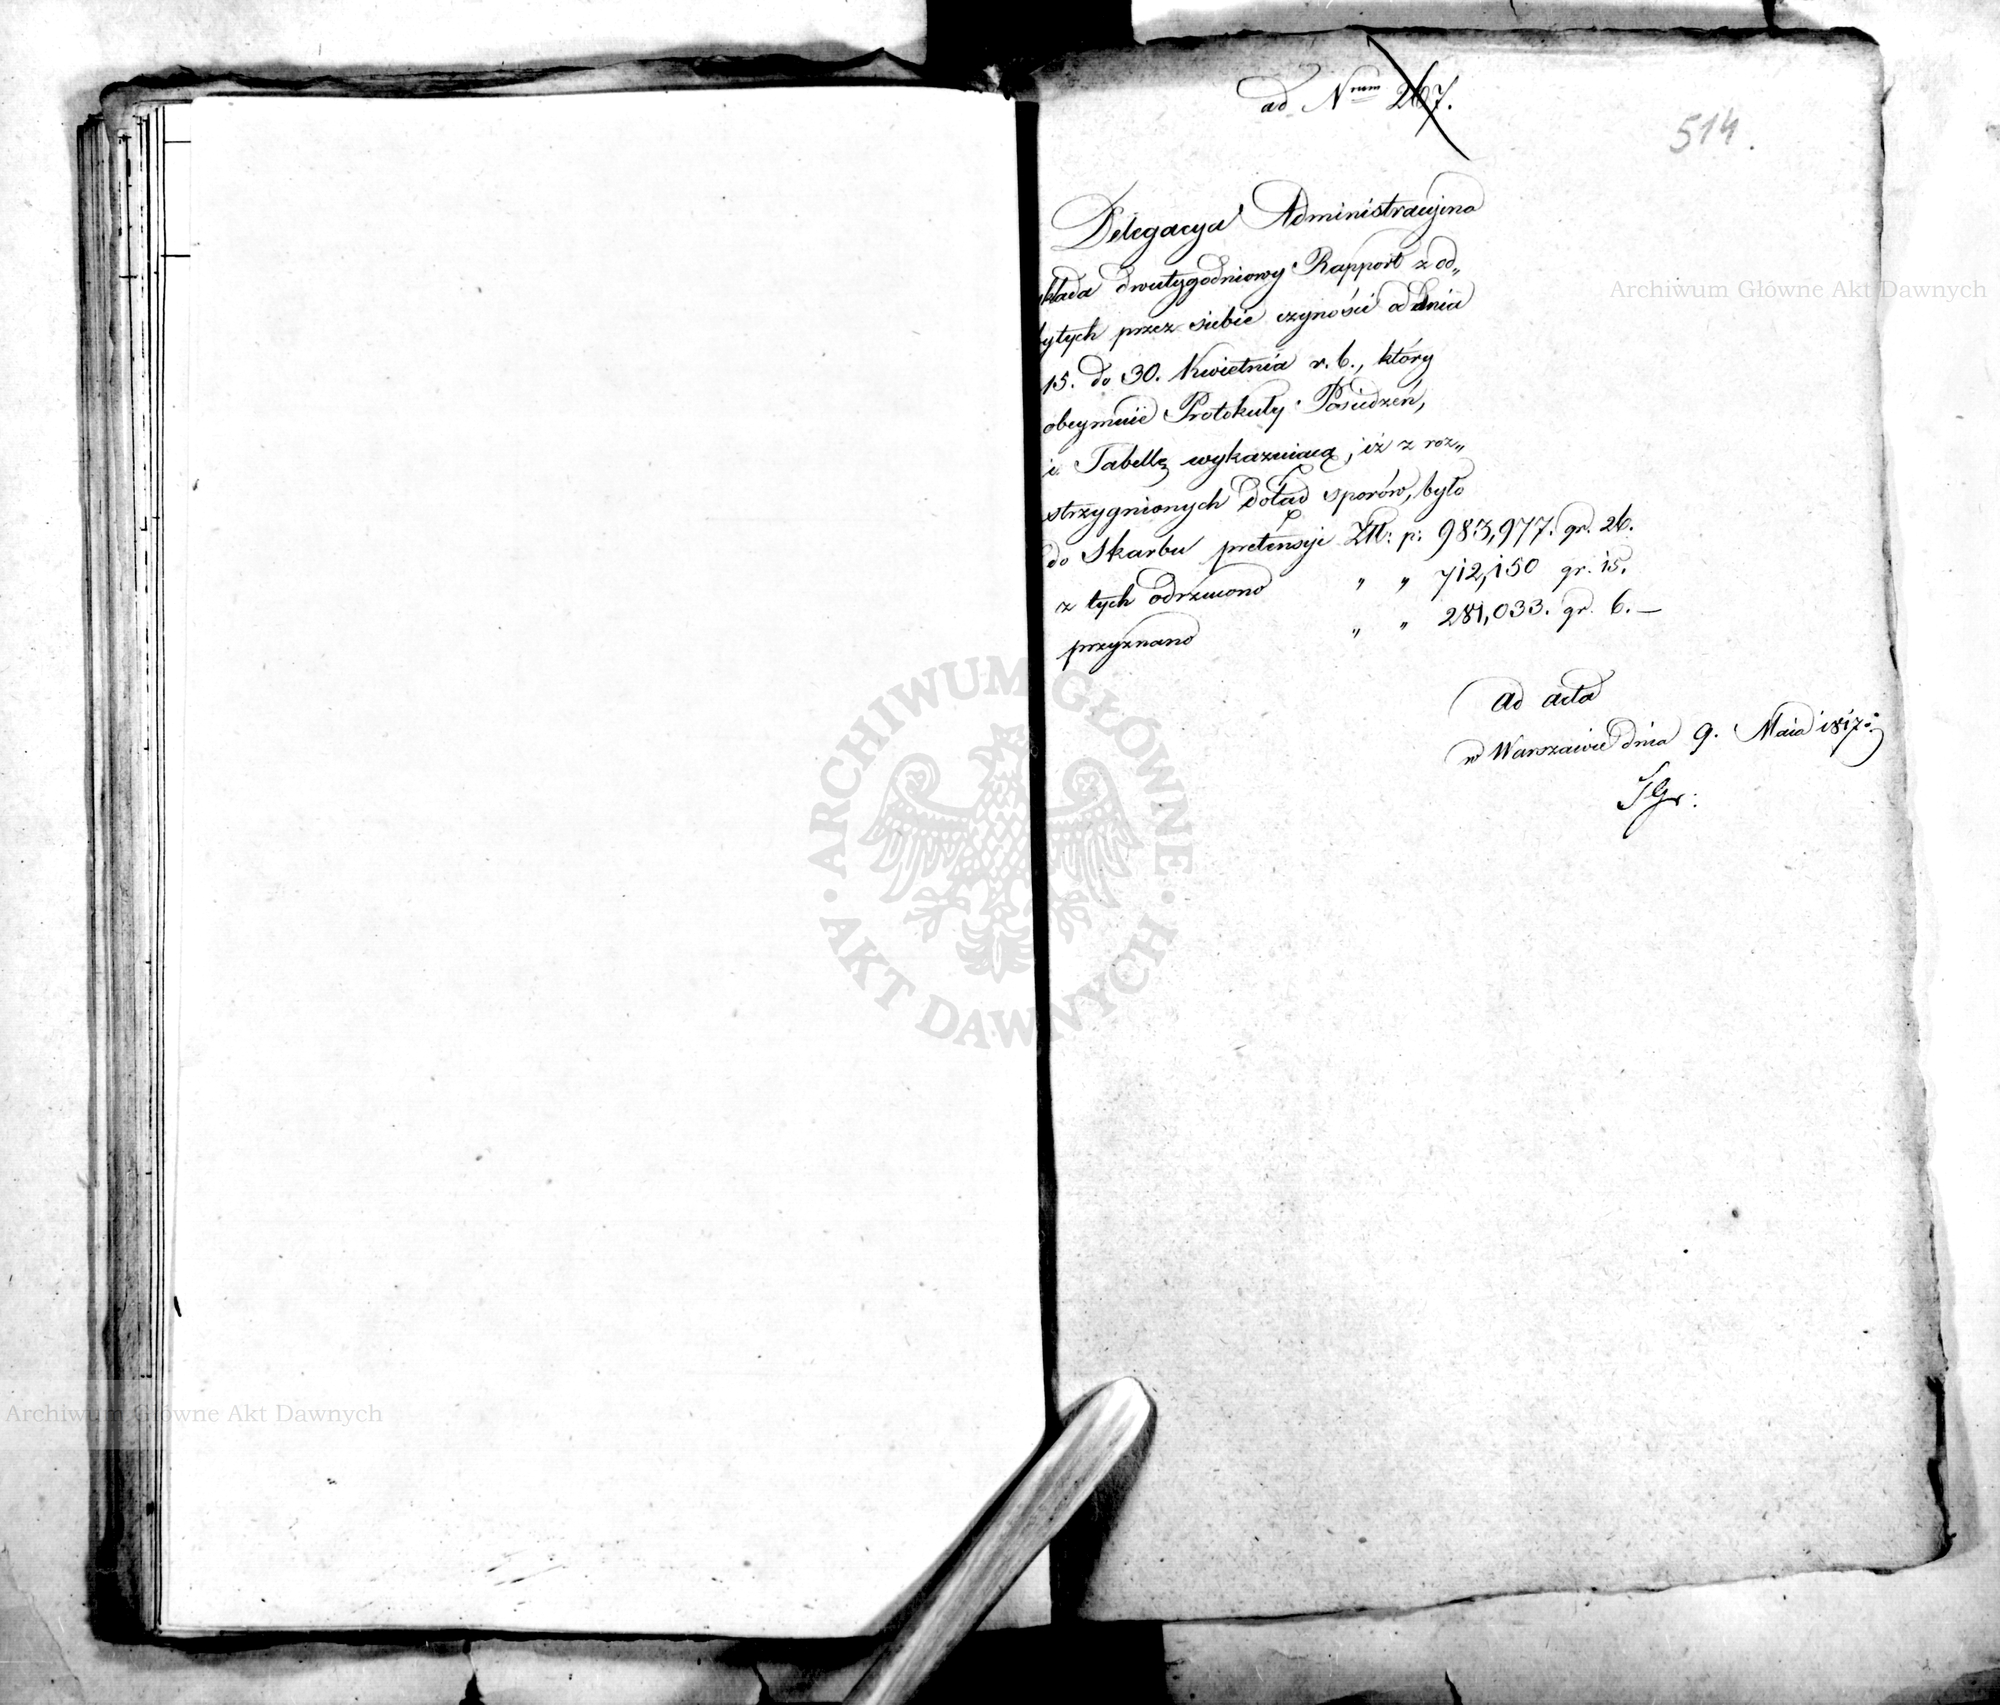 ad Nrum 267.
514.
Delegacya Administracyina
składa dwutygodniowy Rapport z od„
bytych przez siebie czyności od dnia
15. do 30. Kwietnia r. b., który
obeymuie Protokuły Posiedzeń,
i Tabellę wykazuiącą, iż z roz„
strzygnionych dotąd sporów, było
do Skarbu pretensyi Złł: p: 983,977. gr. 26.
z tych odrzucono " " 712,150 gr. 15.
przyznano " " 281,033. gr. 6.—
ad acta
w Warszawie dnia 9. Maia 1817.
Archiwum Główne Akt Dawnych
ARCHIWUM GŁÓWNE · AKT DAWNYCH ·
Archiwum Główne Akt Dawnych